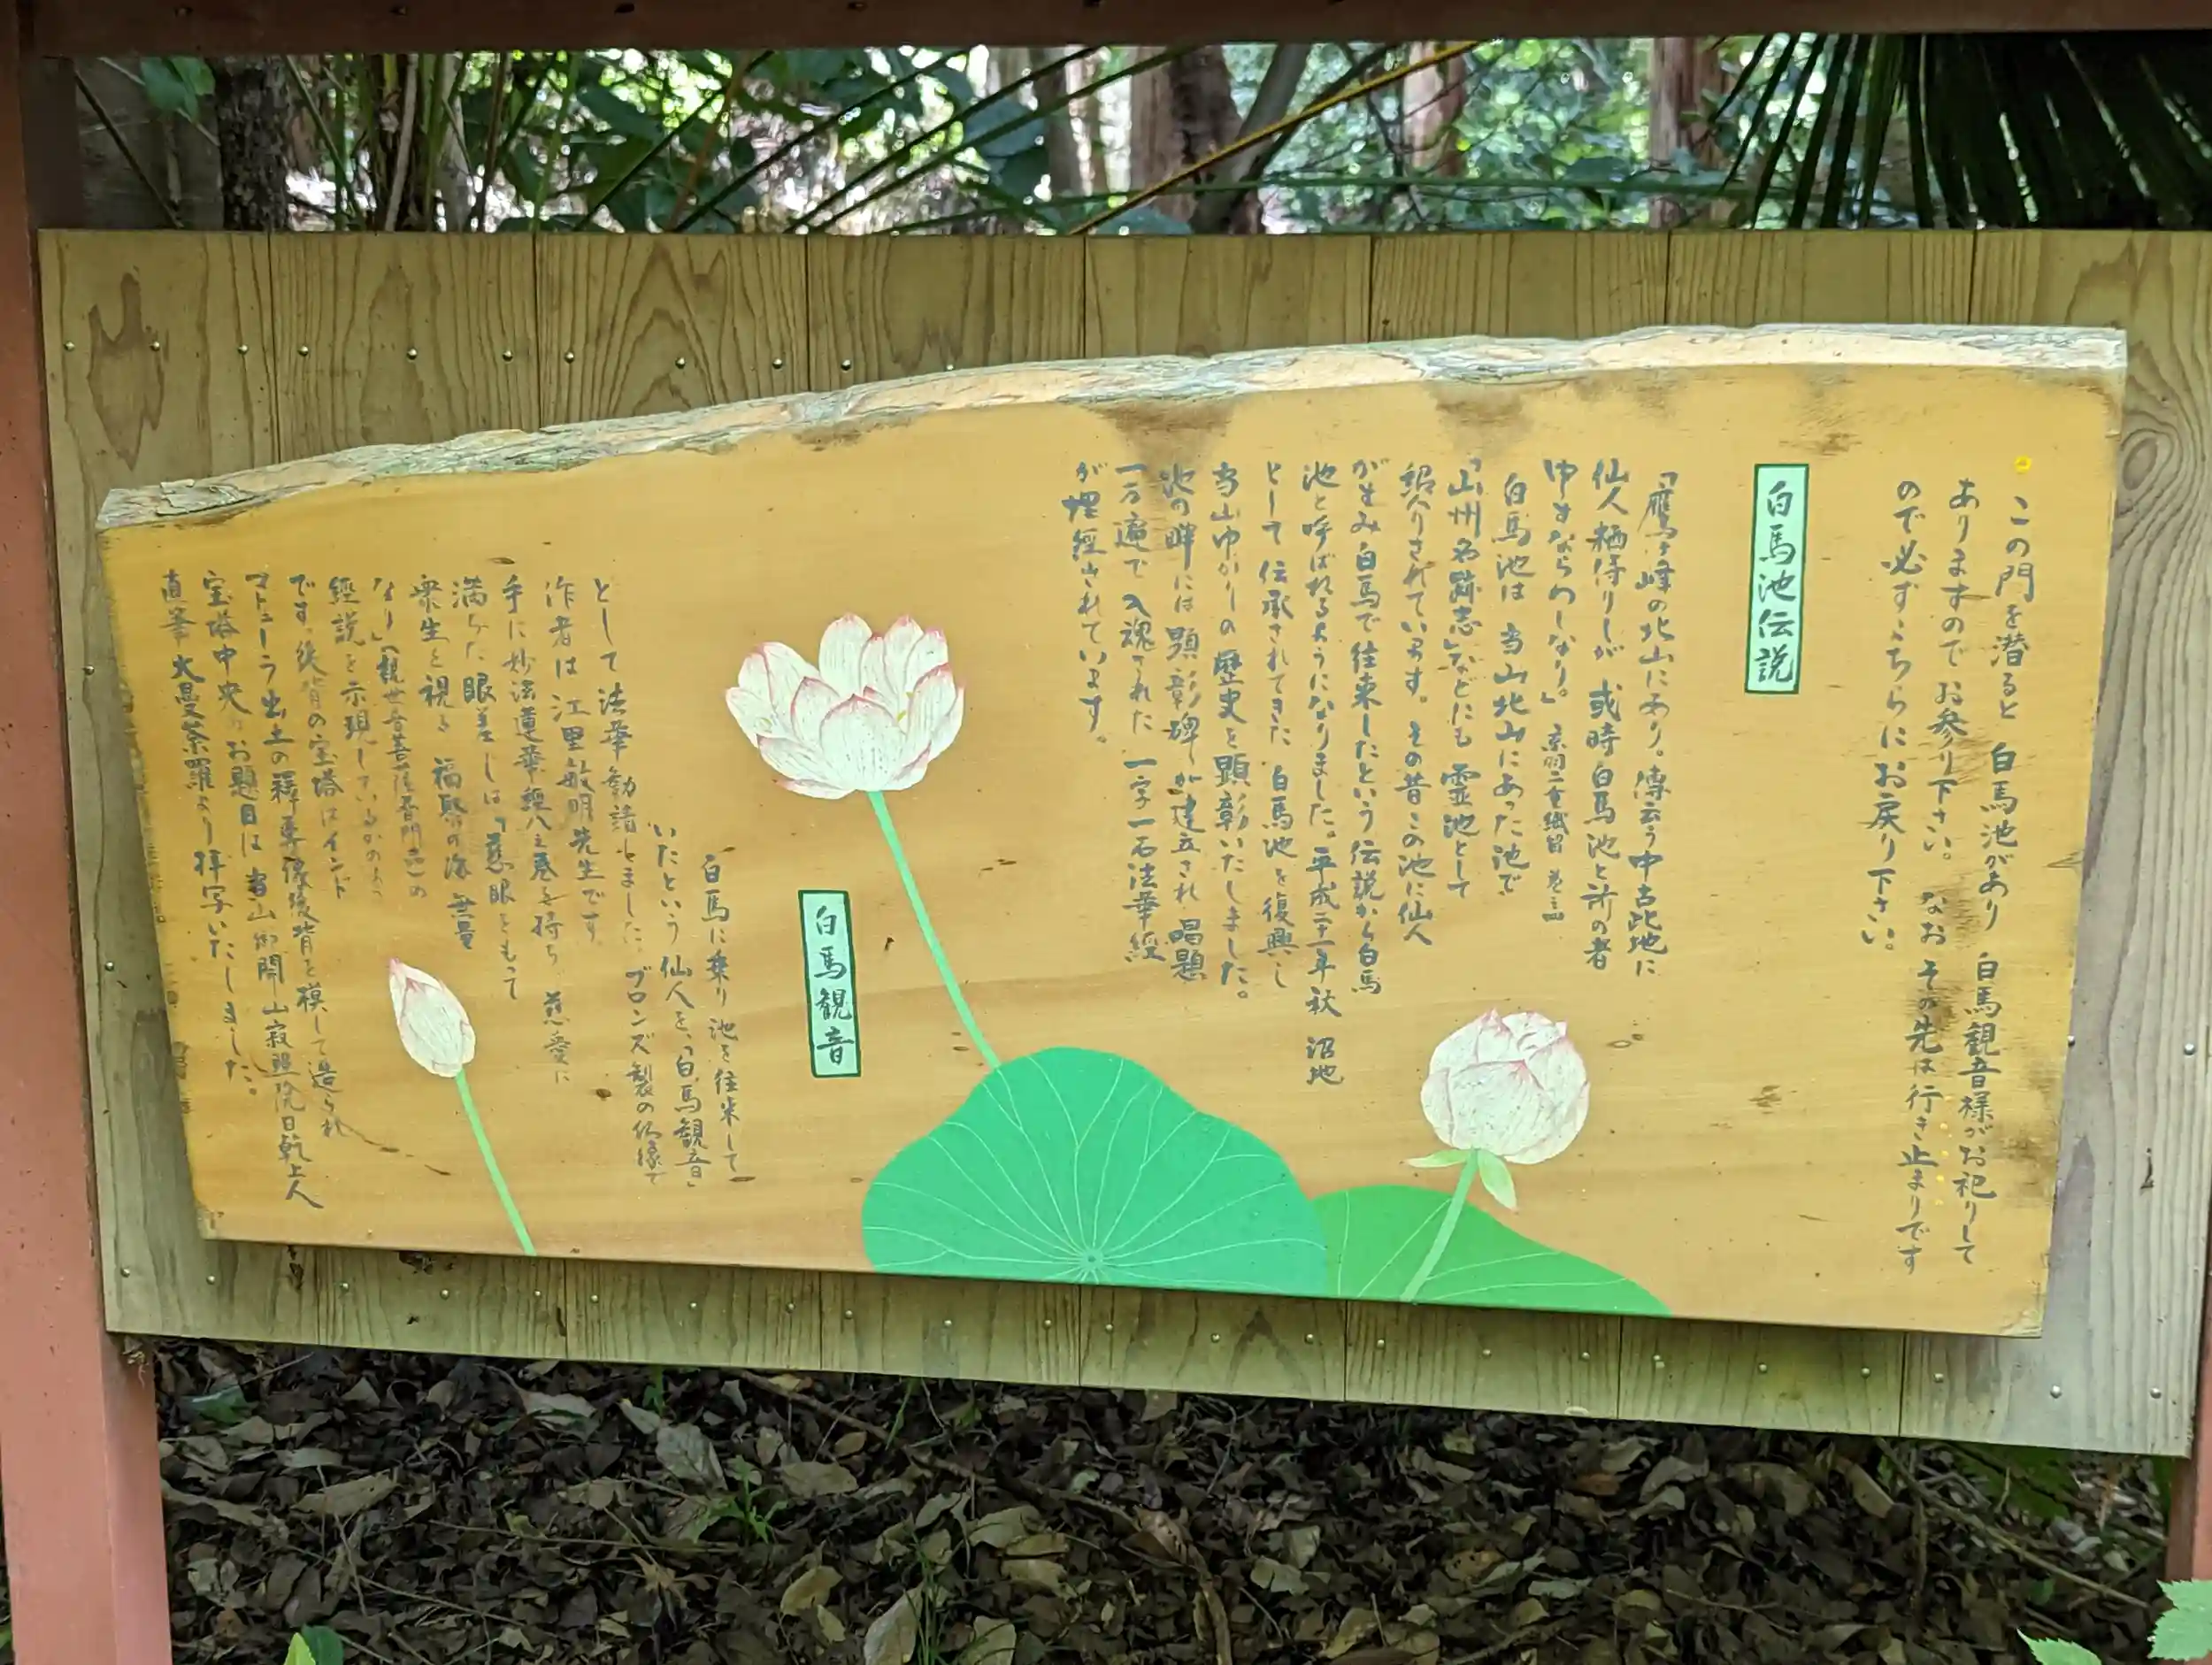 この門を潜ると 白馬池があり 白馬観音様がお祀りして
ありますので お参り下さい。 なお その先は行き止まりです
ので必ずこちらにお戻り下さい。
白馬池伝説
「鷹ヶ峰の北山にあり。傳云う中古此地に
仙人栖侍りしが 或時白馬池と
白馬池は 当山北山にあった池で
「山州名跡志」などにも 霊池として
紹介されています。その昔この池に仙人
が住み白馬で往来したという伝説から白馬
池と呼ばれるようになりました。平成二十一年秋 沼地
として 伝承されてきた 白馬池を復興し
当山ゆかりの歴史を顕彰いたしました。
池の畔には 顕彰碑が建立され 唱題
一万遍で入魂された 一字一石法華経
が埋経されています。
白馬観音
白馬に乗り 池を往来して
いたという 仙人を、「白馬観音」
ブロンズ製の仏像で
として 法華勧請しました。
作者は 江里敏明先生です。
手に妙法蓮華経八之巻を持ち 慈愛に
満ちた眼差しは「慈眼をもって
衆生を視る 福聚の海 無量
なり」(観世音菩薩普門品)の
経説を示現しているかのよう
です。後背の宝塔はインド
マトゥーラ出土の釋尊像後背を模して造られ
宝塔中央のお題目は 当山御開山寂照院日乾上人
直筆大曼荼羅より拝写いたしました。